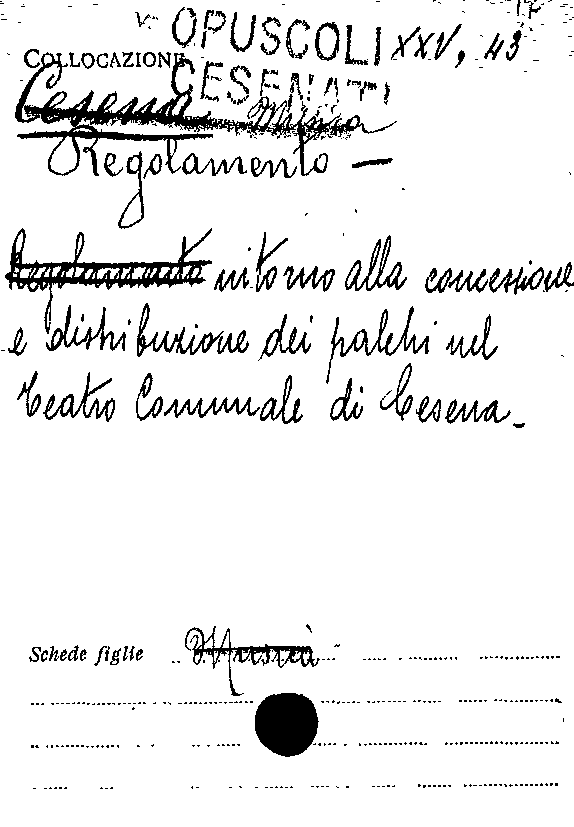 17
V. OPUSCOLI XXV, 43
COLLOCAZIONE CESENATI
Cesena
Regolamento —
Regolamento intorno alla concessione
e distribuzione dei palchi nel
Teatro Comunale di Cesena.
Schede figlie